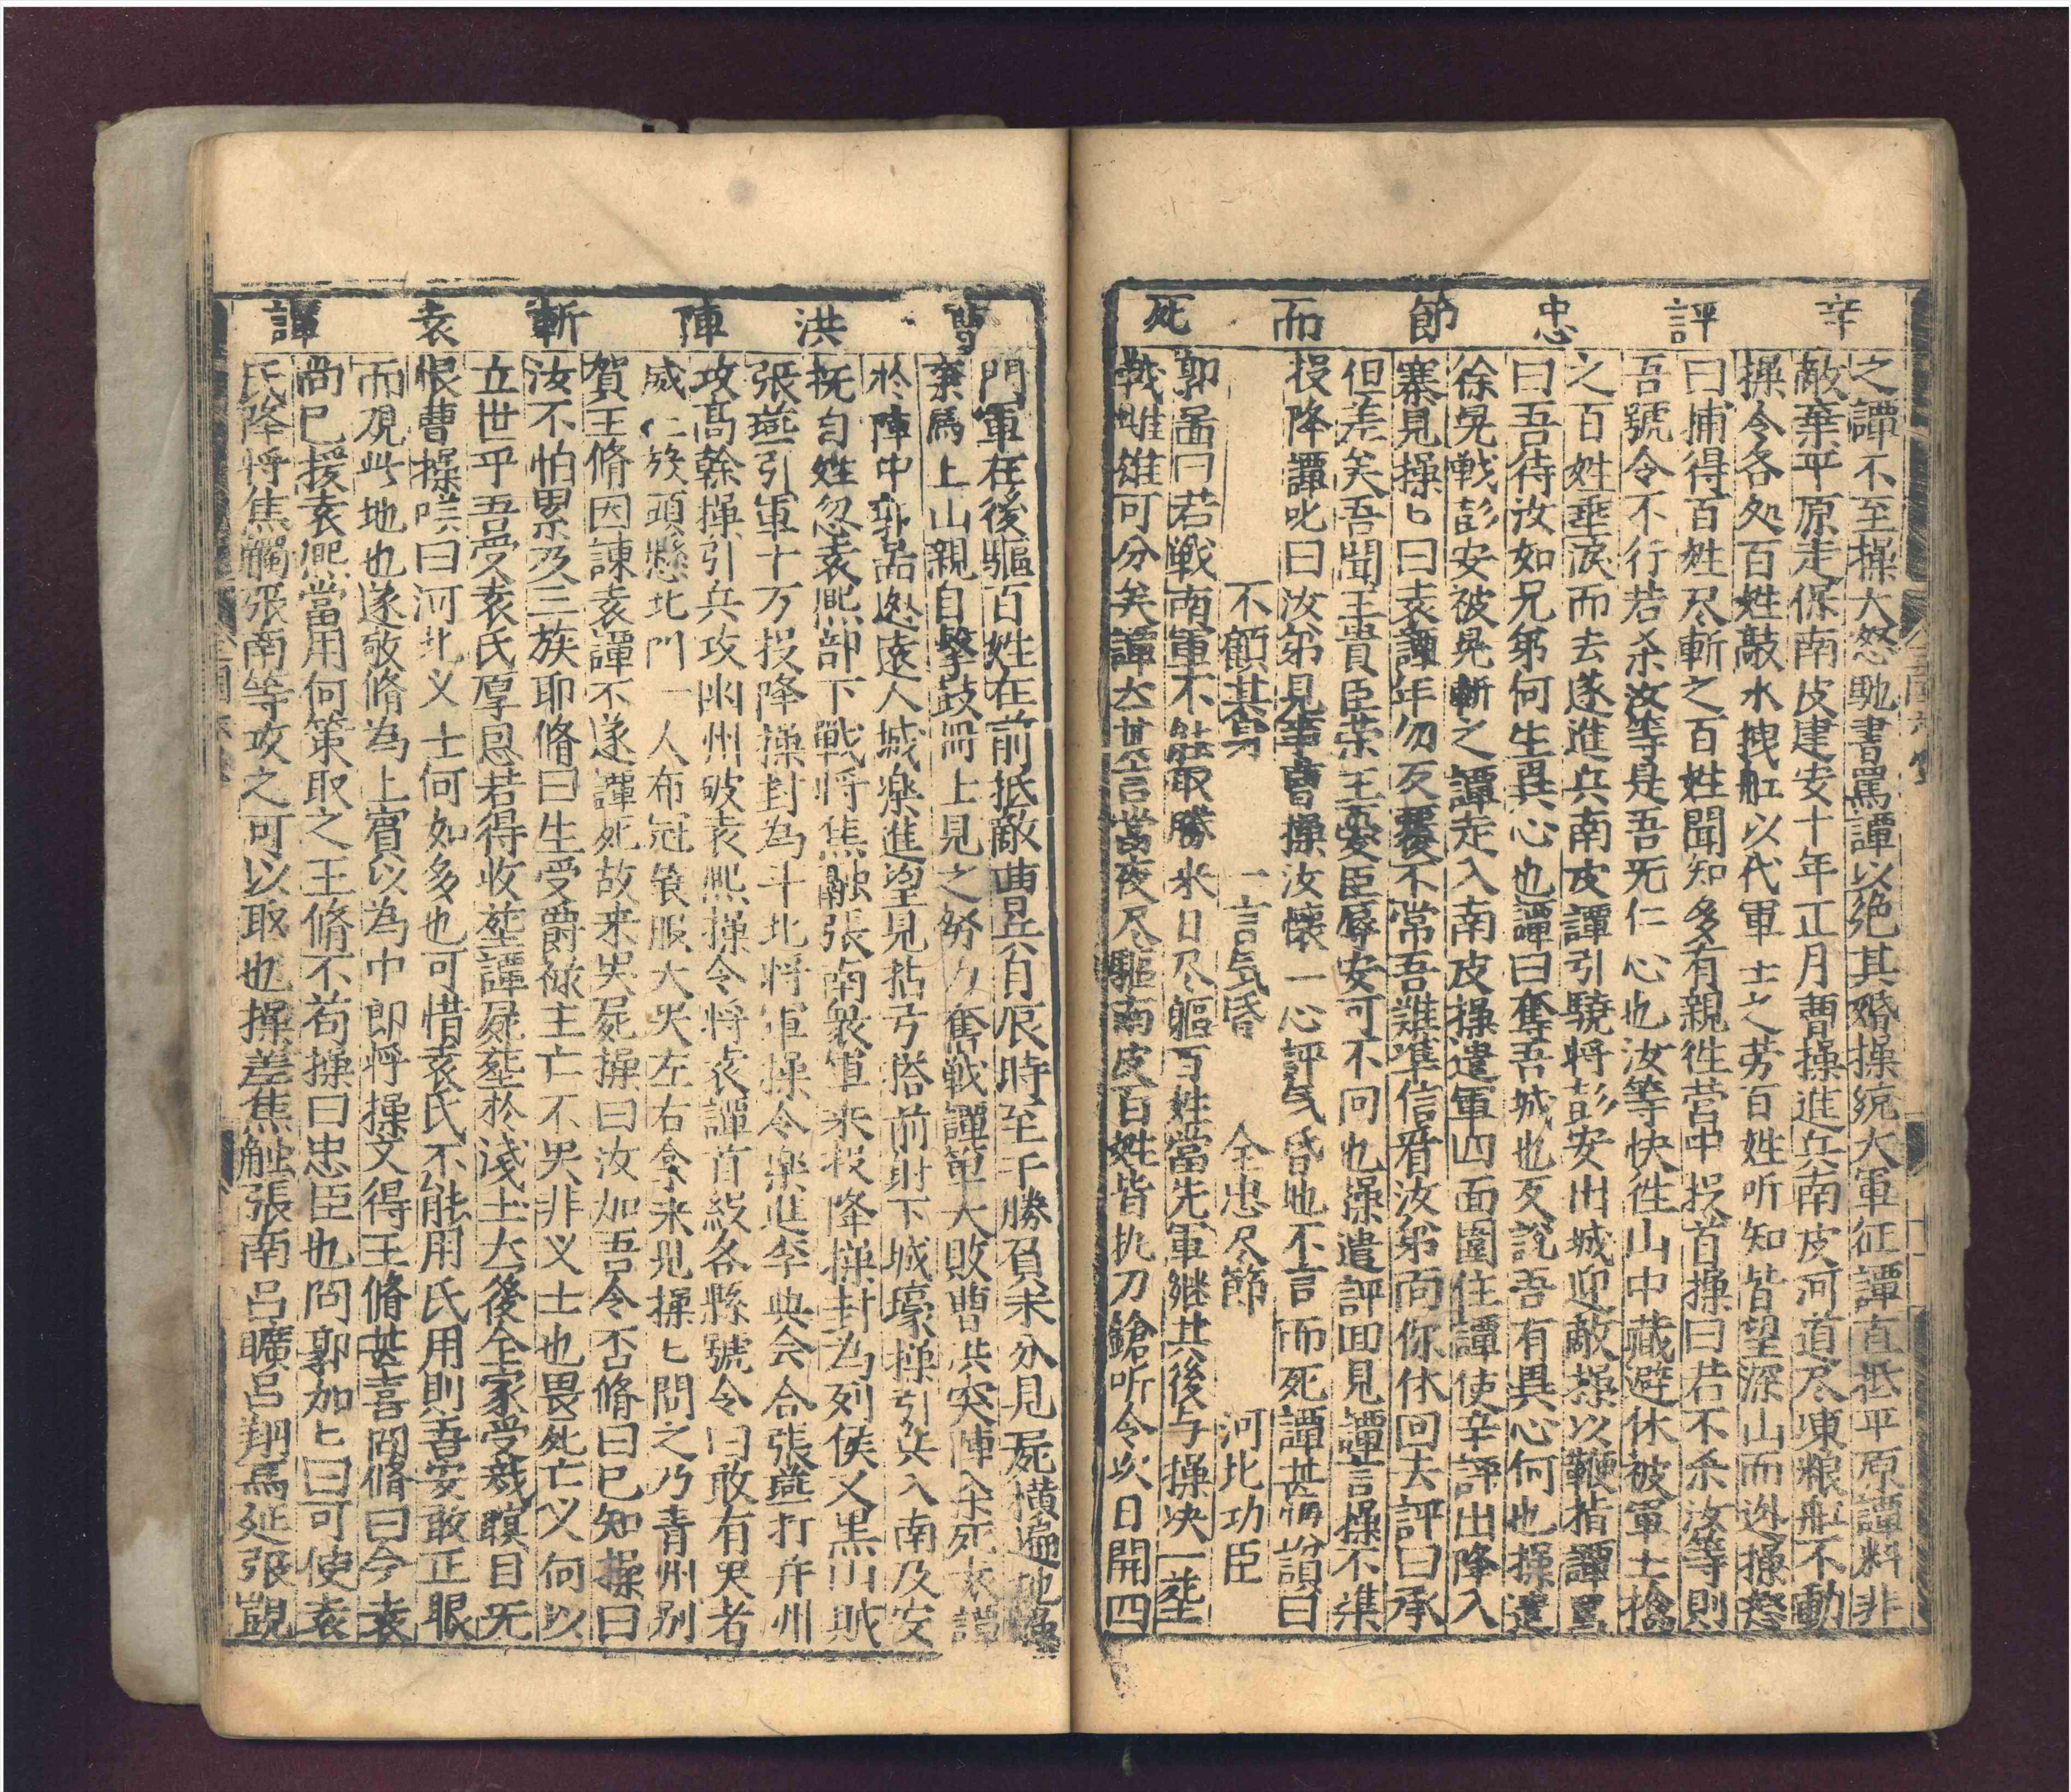 辛評忠節而死
之譚不至操大怒馳書罵譚以絶其婚操統大軍征譚直抵平原譚料非
敵棄平原走保南皮建安十年正月曹操進兵南皮河道尽凍粮舡不動
操令各処百姓敲水拽舡以代軍士之劳百姓听知皆望深山而迯操怒
曰捕得百姓尽斬之百姓聞知多有親徃营中投首操曰若不杀汝等則
吾號令不行若杀汝等是吾无仁心也汝等快徃山中藏避休被軍士擒
之百姓垂涙而去遂進兵南皮譚引驍将彭安出城迎敵操以鞭指譚罵
曰吾待汝如兄弟何生異心也譚曰奪吾城也反說吾有異心何也操遣
徐晃戰彭安被晃斬之譚走入南皮操遣軍四面圍住譚使辛評出降入
寨見操匕曰袁譚年幼反覆不常吾難準信看汝弟面你休回去評曰丞
但差矣吾聞主貴臣荣主憂臣辱安可不回也操遣評囬見譚言操不準
投降譚叱曰汝弟見事曹操汝懷一心評气昏地不言而死譚甚悔讃曰
不顧其身　一言気昏　全忠尽節　河北功臣
郭啚曰若戦南軍不能取勝来日尽軀百姓當先軍継其後与操决一塟
戦雌雄可分矣譚大其言當夜尽驅南皮百姓皆执刀鎗听令次日開四
曹洪陣斬袁譚
門軍在後驅百姓在前抵敵曹兵自辰時至午勝負未分見屍横遍地
棄馬上山親自擊鼓冊上見之努力奮戰譚軍大敗曹洪突陣杀死袁譚
於陣中郭啚迯遠人城樂進望見拈弓搭前射下城壕操引兵入南及安
抚百姓忽袁熈部下戰将焦融張南衆軍来投降操封為列侯又黒山贼
張燕引軍十万投降操封為斗北将軍操令樂進李典会合張燕打并州
攻高幹操引兵攻幽州破袁熈操令将袁譚首级各縣號令曰敢有哭者
威仁族頭懸北門一人布冠飱服大哭左右拿来見操匕問之乃青州别
賀王脩因諌袁譚不遂譚死故来哭屍操曰汝加吾令否脩曰已知操曰
汝不怕累及三族耶脩曰生受爵禄主亡不哭非义士也畏死亡义何以
立世乎吾受袁氏厚恩若得收塟譚屍塟於淺土大後全家受裁瞑目无
恨曹操嘆曰河北义士何如多也可惜袁氏不能用氏用則吾安敢正眼
而覌此地也遂敬脩為上賔以為中郎将操又得王脩甚喜問脩曰今袁
尚已援袁熈當用何策取之王脩不荷操曰忠臣也問郭加匕曰可使袁
氏降将焦觸張南等攻之可以取也操差焦触張南呂曠呂翔馬延張顗